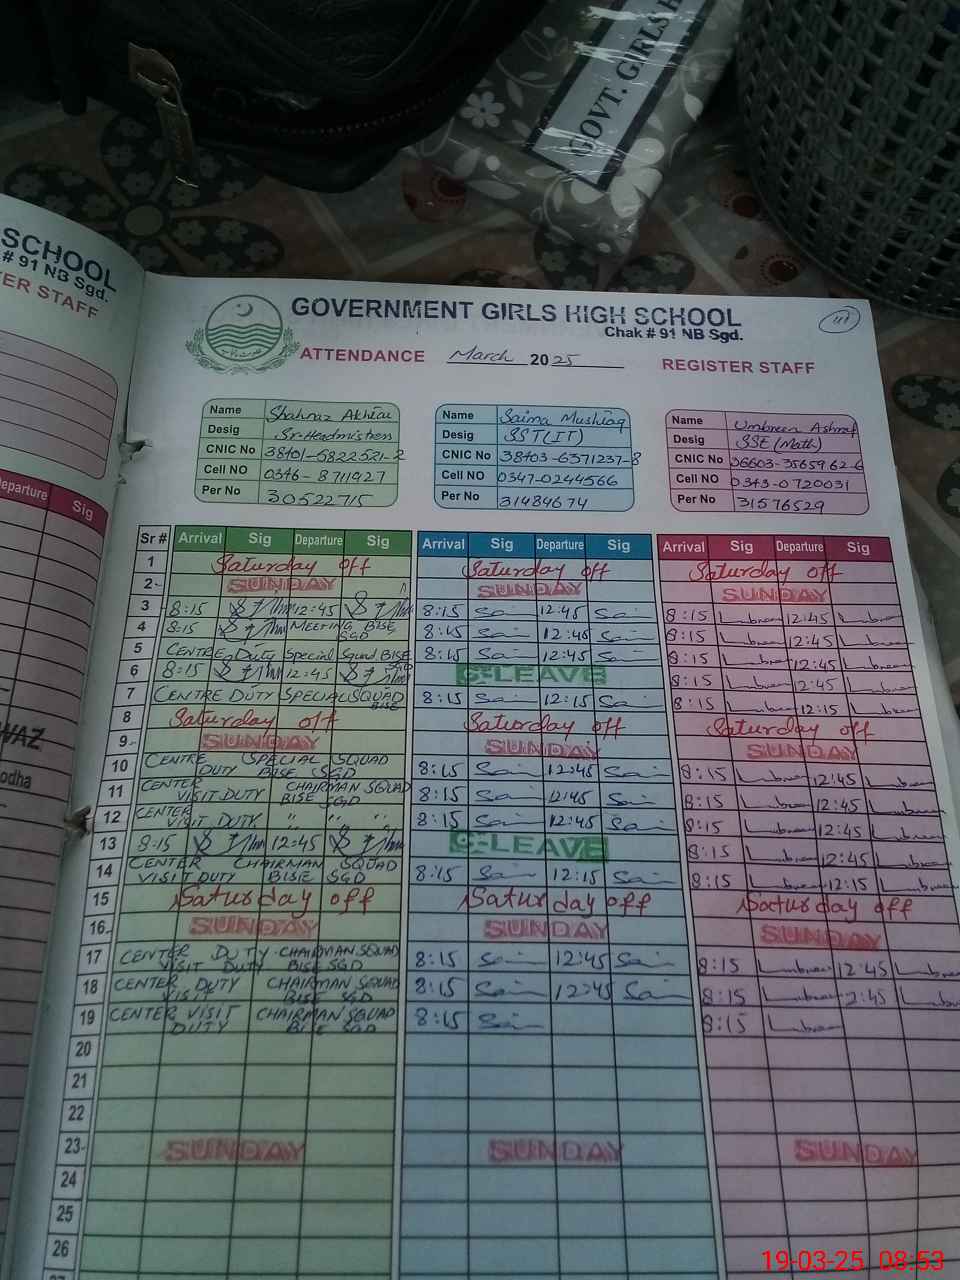 GOVT. GIRLS H
SCHOOL
# 91 NB Sgd.
ER STAFF
Departure Sig
WAZ
odha
GOVERNMENT GIRLS HIGH SCHOOL
Chak # 91 NB Sgd.
ATTENDANCE March 2025 REGISTER STAFF
Name Shahnaz Akhtar
Desig Sr-Headmistress
CNIC No 38401-5822521-2
Cell NO 0346-8711927
Per No 30522715
Name Saima Mushtaq
Desig SST(IT)
CNIC No 38403-6371237-8
Cell NO 0347-0244566
Per No 31484674
Name Umbreen Ashraf
Desig SSE(Math)
CNIC No 06603-3565962-6
Cell NO 0343-0720031
Per No 31576529
Sr # Arrival Sig Departure Sig Arrival Sig Departure Sig Arrival Sig Departure Sig
1 Saturday off Saturday off Saturday off
2 SUNDAY SUNDAY SUNDAY
3 8:15 12:45 8:15 Sai 12:45 Sai 8:15 Umbreen 12:45 Umbreen
4 8:15 MEETING BISE SGD 8:15 Sai 12:45 Sai 8:15 Umbreen 12:45 Umbreen
5 CENTRE Duty Special Squad BISE SGD 8:15 Sai 12:45 Sai 8:15 Umbreen 12:45 Umbreen
6 8:15 12:45 C-LEAVE 8:15 Umbreen 12:45 Umbreen
7 CENTRE DUTY SPECIAL SQUAD BISE 8:15 Sai 12:15 Sai 8:15 Umbreen 12:15 Umbreen
8 Saturday off Saturday off Saturday off
9 SUNDAY SUNDAY SUNDAY
10 CENTRE SPECIAL SQUAD DUTY BISE SGD 8:15 Sai 12:45 Sai 8:15 Umbreen 12:45 Umbreen
11 CENTER VISIT DUTY CHAIRMAN SQUAD BISE SGD 8:15 Sai 12:45 Sai 8:15 Umbreen 12:45 Umbreen
12 CENTER VISIT DUTY " " " 8:15 Sai 12:45 Sai 8:15 Umbreen 12:45 Umbreen
13 8:15 12:45 C-LEAVE 8:15 Umbreen 12:45 Umbreen
14 CENTER VISIT DUTY CHAIRMAN SQUAD BISE SGD 8:15 Sai 12:15 Sai 8:15 Umbreen 12:15 Umbreen
15 Saturday off Saturday off Saturday off
16 SUNDAY SUNDAY SUNDAY
17 CENTER DUTY VISIT DUTY CHAIRMAN SQUAD BISE SGD 8:15 Sai 12:45 Sai 8:15 Umbreen 12:45 Umbreen
18 CENTER DUTY VISIT CHAIRMAN SQUAD BISE SGD 8:15 Sai 12:45 Sai 8:15 Umbreen 2:45 Umbreen
19 CENTER VISIT DUTY CHAIRMAN SQUAD BISE SGD 8:15 Sai 8:15 Umbreen
20
21
22
23 SUNDAY SUNDAY SUNDAY
24
25
26
19-03-25 08:53